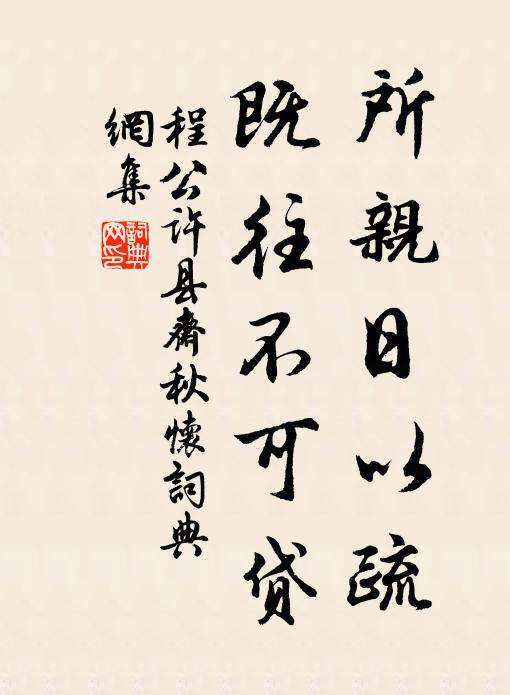 所親日以疏
既往不可贷
程公许县齋秋懷詞典
網集
詞典
网印